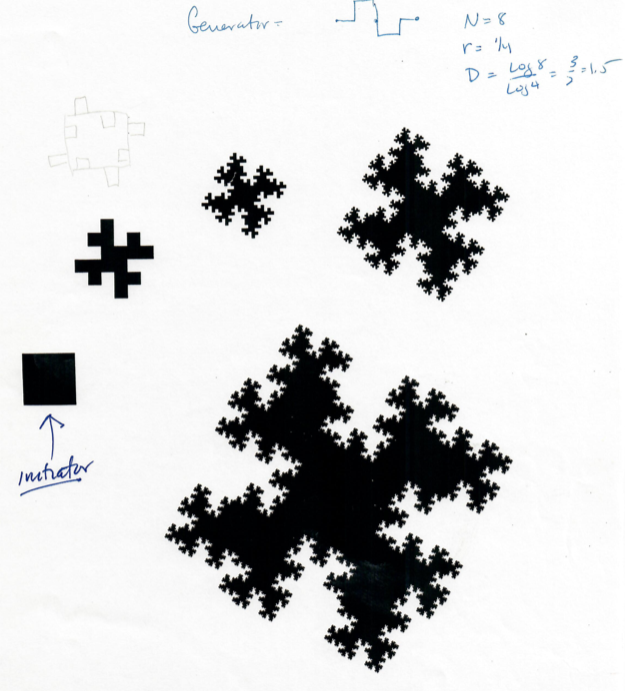 Generator =
N = 8
r = 1/4
D = Log 8 / Log 4 = 3/2 = 1.5
initiator